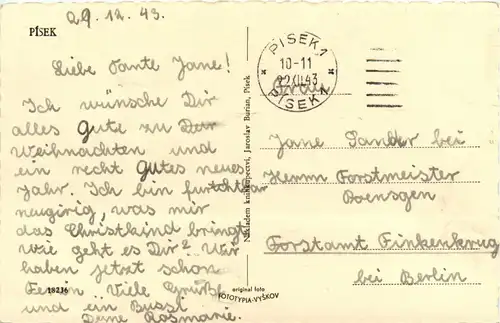 29.12.43.
PÍSEK
Liebe Tante Jane!
Ich wünsche Dir
alles Gute zu Dur
Weihnachten und
ein recht Gutes neues
Jahr. Ich bin furchtbar
neugirig, was mir
das Christkind bringt,
wie geht es Dir? Wir
haben jetzt schon
Ferien Viele Grüße
und ein Bussl
Deine Rosmarie.
18236
Nákladem knihkupectví, Jaroslav Burian, Písek
original foto
FOTOTYPIA-VYŠKOV
PÍSEK 1
10-11
22.XII.43
PÍSEK 1
Frau
Jane Sander bei
Herrn Forstmeister
Boensgen
Forstamt Finkenkrug
bei Berlin